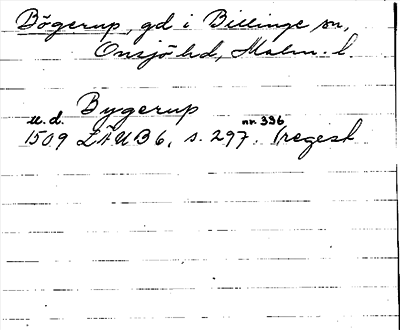 Bögerup, gd i Billinge sn,
Onsjö hd, Malm. l.
Bygerup
u.d.
1509 LÄUB 6, s. 297. nr. 336 (regest